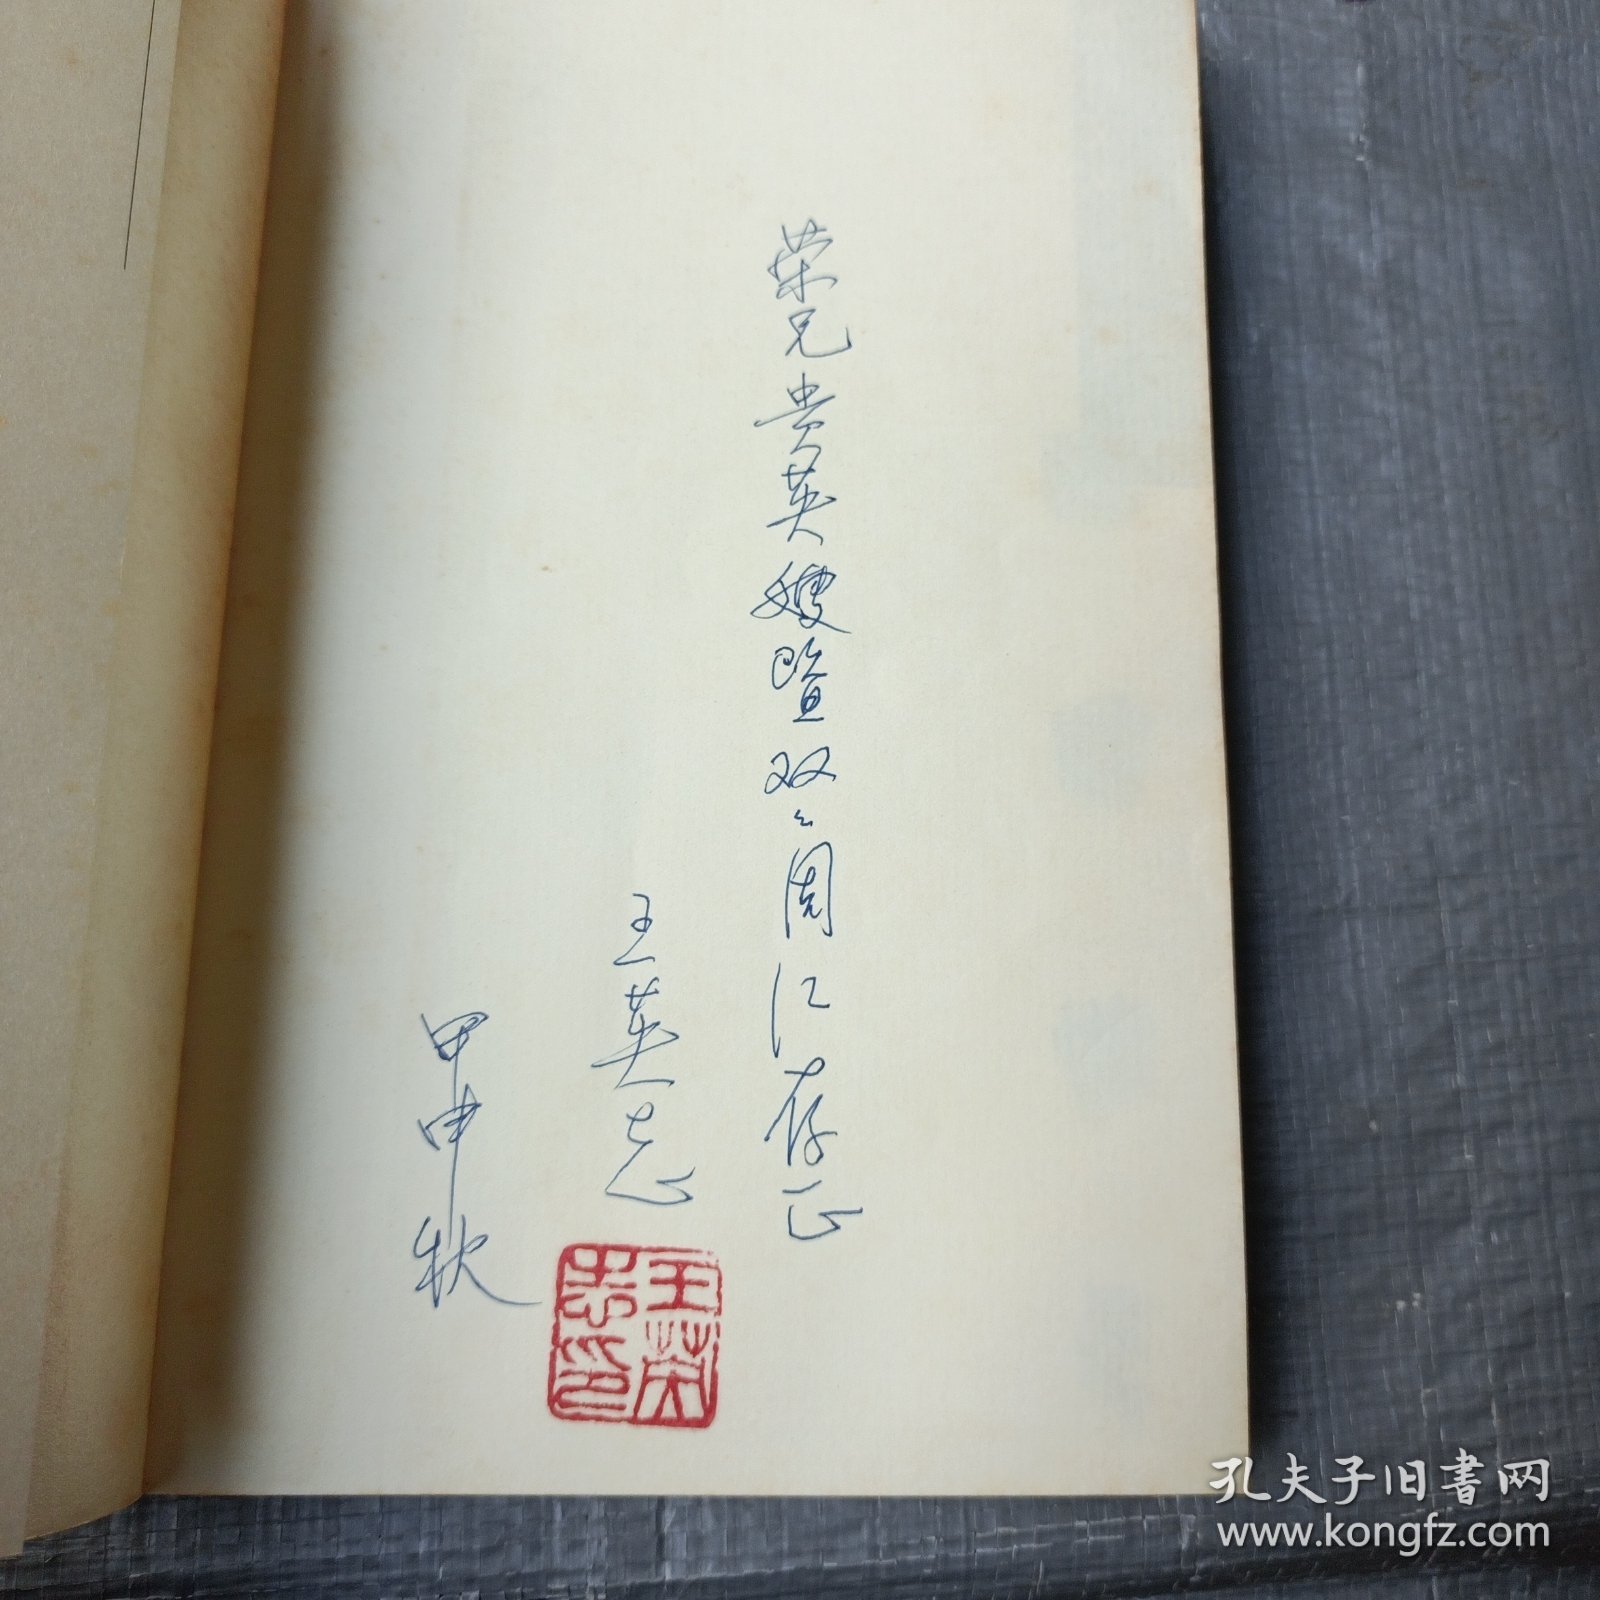 荣兄贵英嫂暨双双周江存正
王英志
甲申秋
王英志印
孔夫子旧书网
www.kongfz.com